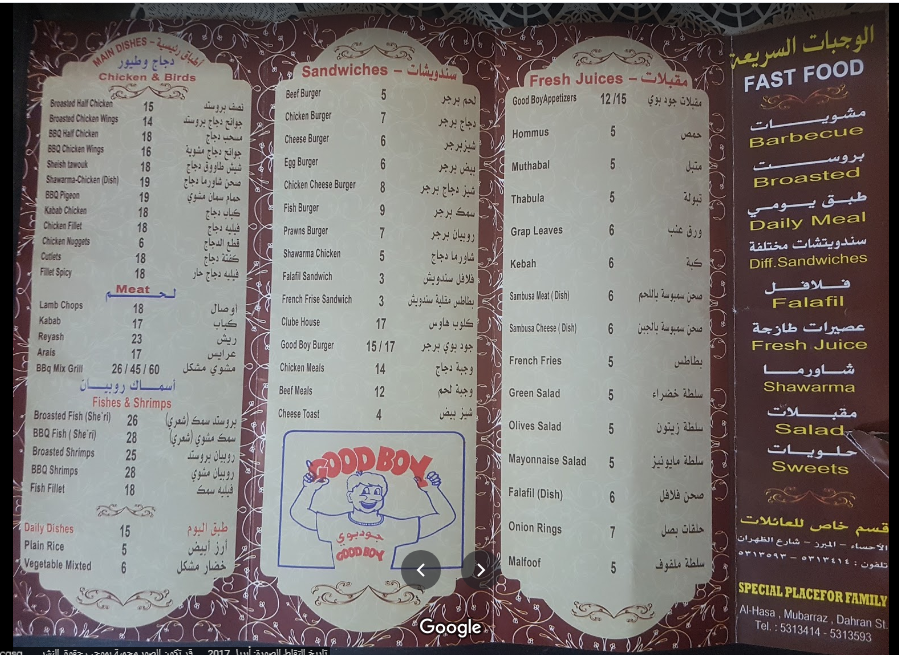 MAIN DISHES - أطباق رئيسية
دجاج وطيور
Chicken & Birds
Broasted Half Chicken 15 نصف بروستد
Broasted Chicken Wings 14 جوانح دجاج بروستد
BBQ Half Chicken 18 مسحب دجاج
BBQ Chicken Wings 16 جوانح دجاج مشوية
Sheish tawouk 18 شيش طاووق دجاج
Shawarma-Chicken (Dish) 19 صحن شاورما دجاج
BBQ Pigeon 19 حمام سمان مشوي
Kabab Chicken 18 كباب دجاج
Chicken Fillet 18 فيليه دجاج
Chicken Nuggets 6 قطع الدجاج
Cutlets 18 كفتة دجاج
Fillet Spicy 18 فيليه دجاج حار
Meat لحم
Lamb Chops 18 أوصال
Kabab 17 كباب
Reyash 23 ريش
Arais 17 عرايس
BBq Mix Grill 26 / 45 / 60 مشوي مشكل
أسماك روبيان
Fishes & Shrimps
Broasted Fish (She'ri) 26 بروستد سمك (شعري)
BBQ Fish ( She'ri) 28 سمك مشوي (شعري)
Broasted Shrimps 25 روبيان بروستد
BBQ Shrimps 28 روبيان مشوي
Fish Fillet 18 فيليه سمك
Daily Dishes 15 طبق اليوم
Plain Rice 5 أرز أبيض
Vegetable Mixted 6 خضار مشكل
Sandwiches - سندويشات
Beef Burger 5 لحم برجر
Chicken Burger 7 دجاج برجر
Cheese Burger 6 شيزبرجر
Egg Burger 6 بيض برجر
Chicken Cheese Burger 8 شيز دجاج برجر
Fish Burger 9 سمك برجر
Prawns Burger 7 روبيان برجر
Shawarma Chicken 5 شاورما دجاج
Falafil Sandwich 3 فلافل سندويش
French Frise Sandwich 3 بطاطس مقلية سندويش
Clube House 17 كلوب هاوس
Good Boy Burger 15 / 17 جود بوي برجر
Chicken Meals 14 وجبة دجاج
Beef Meals 12 وجبة لحم
Cheese Toast 4 شيز بيض
GOOD BOY
جود بوي
GOOD BOY
Fresh Juices - مقبلات
Good BoyAppetizers 12 /15 مقبلات جود بوي
Hommus 5 حمص
Muthabal 5 متبل
Thabula 5 تبولة
Grap Leaves 6 ورق عنب
Kebah 6 كبة
Sambusa Meat ( Dish) 6 صحن سمبوسة باللحم
Sambusa Cheese ( Dish) 6 صحن سمبوسة بالجبن
French Fries 5 بطاطس
Green Salad 5 سلطة خضراء
Olives Salad 5 سلطة زيتون
Mayonnaise Salad 5 سلطة مايونيز
Falafil (Dish) 6 صحن فلافل
Onion Rings 7 حلقات بصل
Malfoof 5 سلطة ملفوف
الوجبات السريعة
FAST FOOD
مشويات
Barbecue
بروست
Broasted
طبق يومي
Daily Meal
سندويتشات مختلفة
Diff.Sandwiches
فلافل
Falafil
عصيرات طازجة
Fresh Juice
شاورما
Shawarma
مقبلات
Salad
حلويات
Sweets
قسم خاص للعائلات
الاحساء - المبرز - شارع الظهران
تلفون : ٥٣١٣٤١٤ - ٥٣١٣٥٩٣
SPECIAL PLACEFOR FAMILY
Al-Hasa , Mubarraz , Dahran St.
Tel. : 5313414 - 5313593
Google